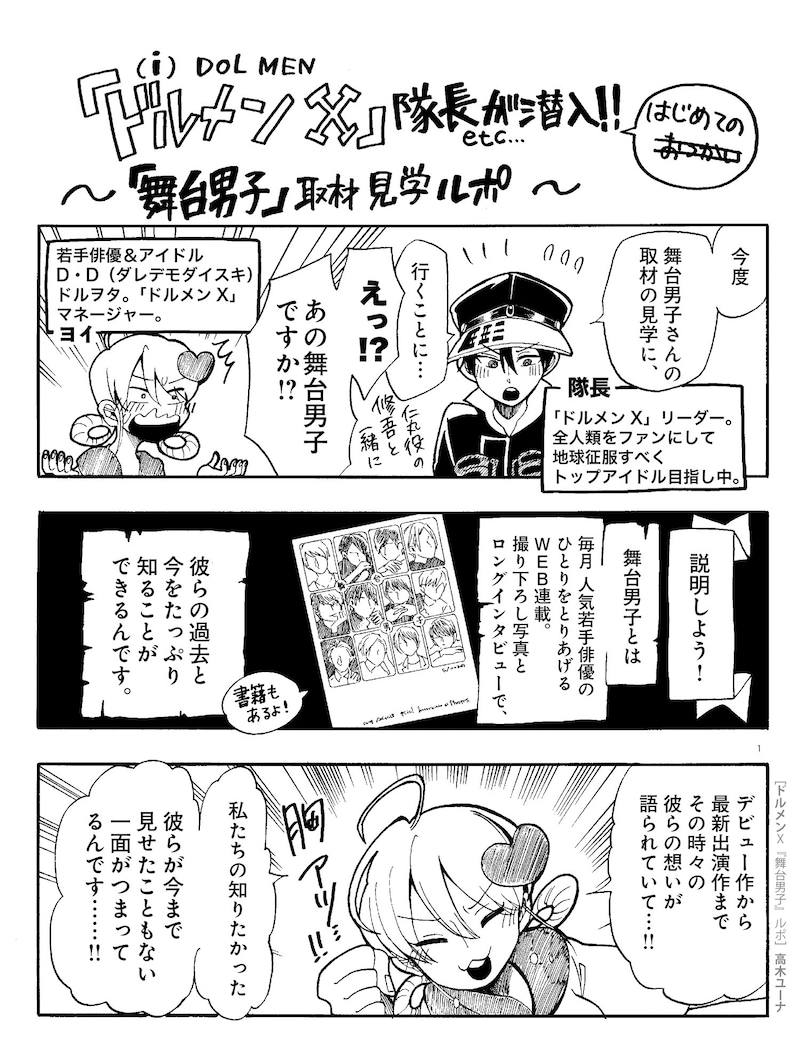 (i) DOL MEN
「ドルメンX」隊長が潜入!!
etc…
はじめての
おつかい
～「舞台男子」取材見学ルポ～
今度
舞台男子さんの
取材の見学に、
行くことに…
仁丸役の
修吾と
一緒に
隊長
「ドルメンX」リーダー。
全人類をファンにして
地球征服すべく
トップアイドル目指し中。
えっ!?
あの舞台男子
ですか!?
若手俳優&アイドル
D・D（ダレデモダイスキ）
ドルヲタ。「ドルメンX」
マネージャー。
ヨイ
説明しよう!
舞台男子とは
毎月 人気若手俳優の
ひとりをとりあげる
WEB連載。
撮り下ろし写真と
ロングインタビューで、
彼らの過去と
今をたっぷり
知ることが
できるんです。
書籍も
あるよ!
1
デビュー作から
最新出演作まで
その時々の
彼らの想いが
語られていて…!!
胸アツ!!
私たちの知りたかった
彼らが今まで
見せたこともない
一面がつまって
るんです……!!
［ドルメンX『舞台男子』ルポ］高木ユーナ